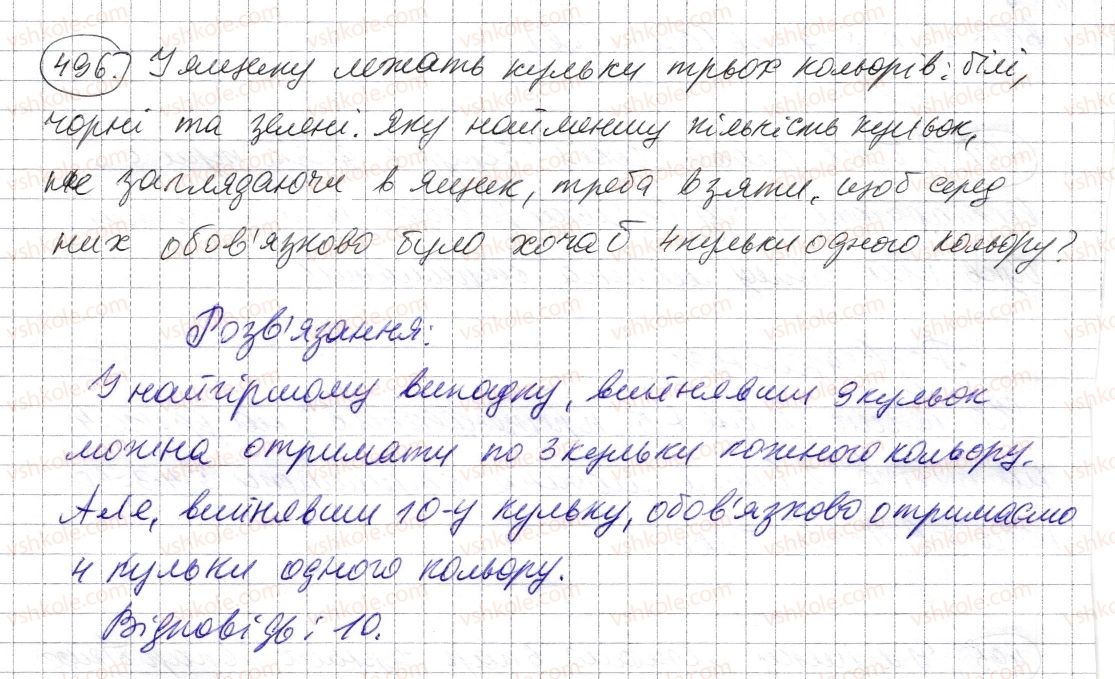 496. У ящику лежать кульки трьох кольорів: білі,
чорні та зелені. Яку найменшу кількість кульок,
не заглядаючи в ящик, треба взяти, щоб серед
них обов'язково було хоча б 4 кульки одного кольору?
Розв'язання:
У найгіршому випадку, вийнявши 9 кульок
можна отримати по 3 кульки кожного кольору.
Але, вийнявши 10-у кульку, обов'язково отримаємо
4 кульки одного кольору.
Відповідь: 10.